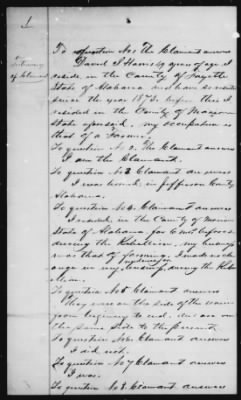 1
Testimony
of Claimant
To question No 1 The Claimant answers
David J Harris 49 years of age I
reside in the County of Fayette
State of Alabama and have so resided
since the year 1873. before then I
resided in the County of Marion
State aforesaid, my occupation is
that of a Farmer.
To question No 2. The Claimant answers
I am the Claimant.
To question No 3 Claimant answers
I was born in Jefferson County
Alabama.
To question No 4. Claimant answers
I resided in the County of Marion
State of Alabama for 6 months before
during the Rebellion, my business
was that of farming. I made no ch
ange in my business during the Rebe
llion.
To question No 5 Claimant answers
They were on the side of the
from beginning to end, and are on
the same side to the present.
To question No 6. Claimant answers
I did not.
To question No 7 Claimant answers
I was.
To question No 8. Claimant answers